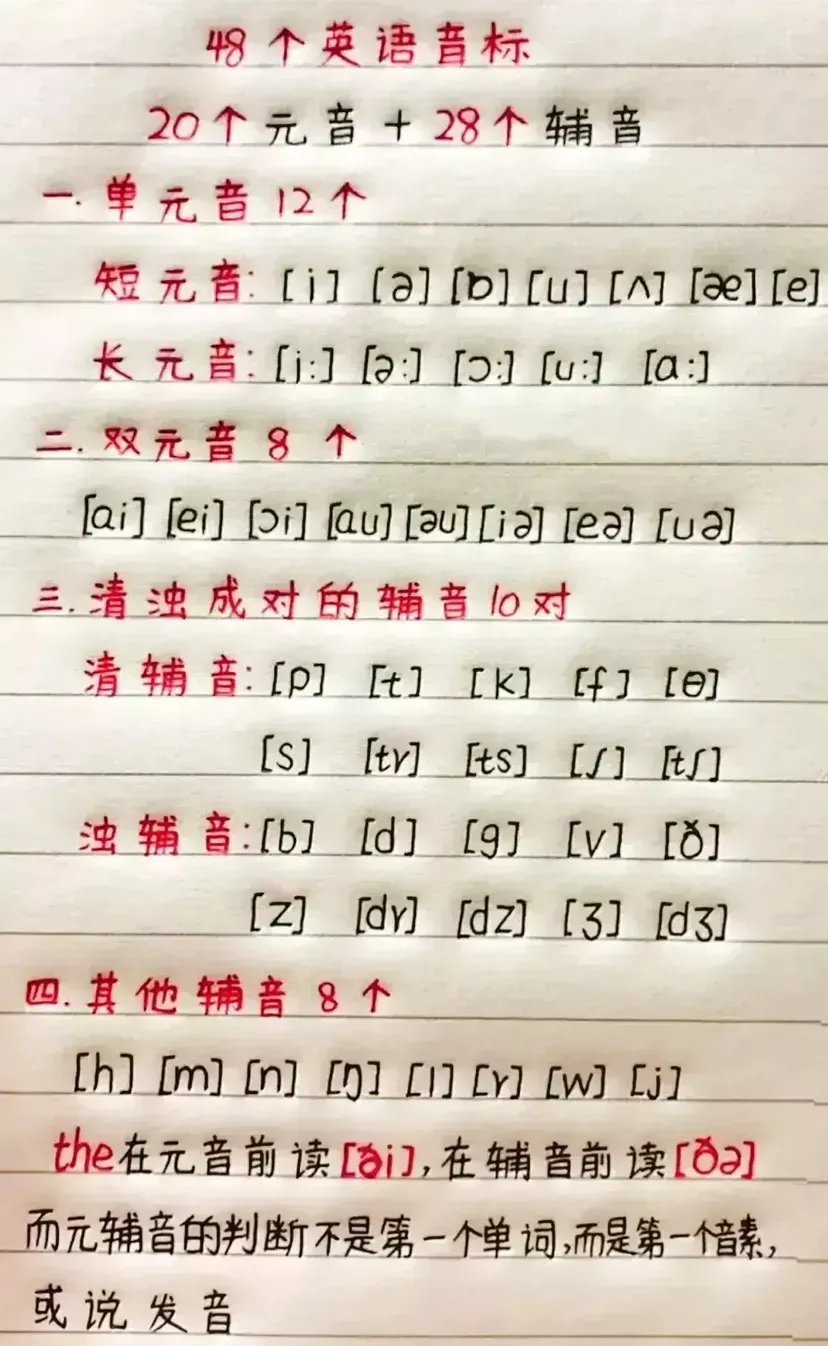 48个英语音标
20个元音+28个辅音
一.单元音12个
短元音:[i] [ə] [ɒ] [u] [ʌ] [æ] [e]
长元音:[i:] [ə:] [ɔ:] [u:] [a:]
二.双元音8个
[ai] [ei] [ɔi] [au] [əu] [iə] [eə] [uə]
三.清浊成对的辅音10对
清辅音:[p] [t] [k] [f] [θ]
[s] [tr] [ts] [ʃ] [tʃ]
浊辅音:[b] [d] [g] [v] [ð]
[z] [dr] [dz] [ʒ] [dʒ]
四.其他辅音8个
[h] [m] [n] [ŋ] [l] [r] [w] [j]
the在元音前读[ði],在辅音前读[ðə]
而元辅音的判断不是第一个单词,而是第一个音素,
或说发音